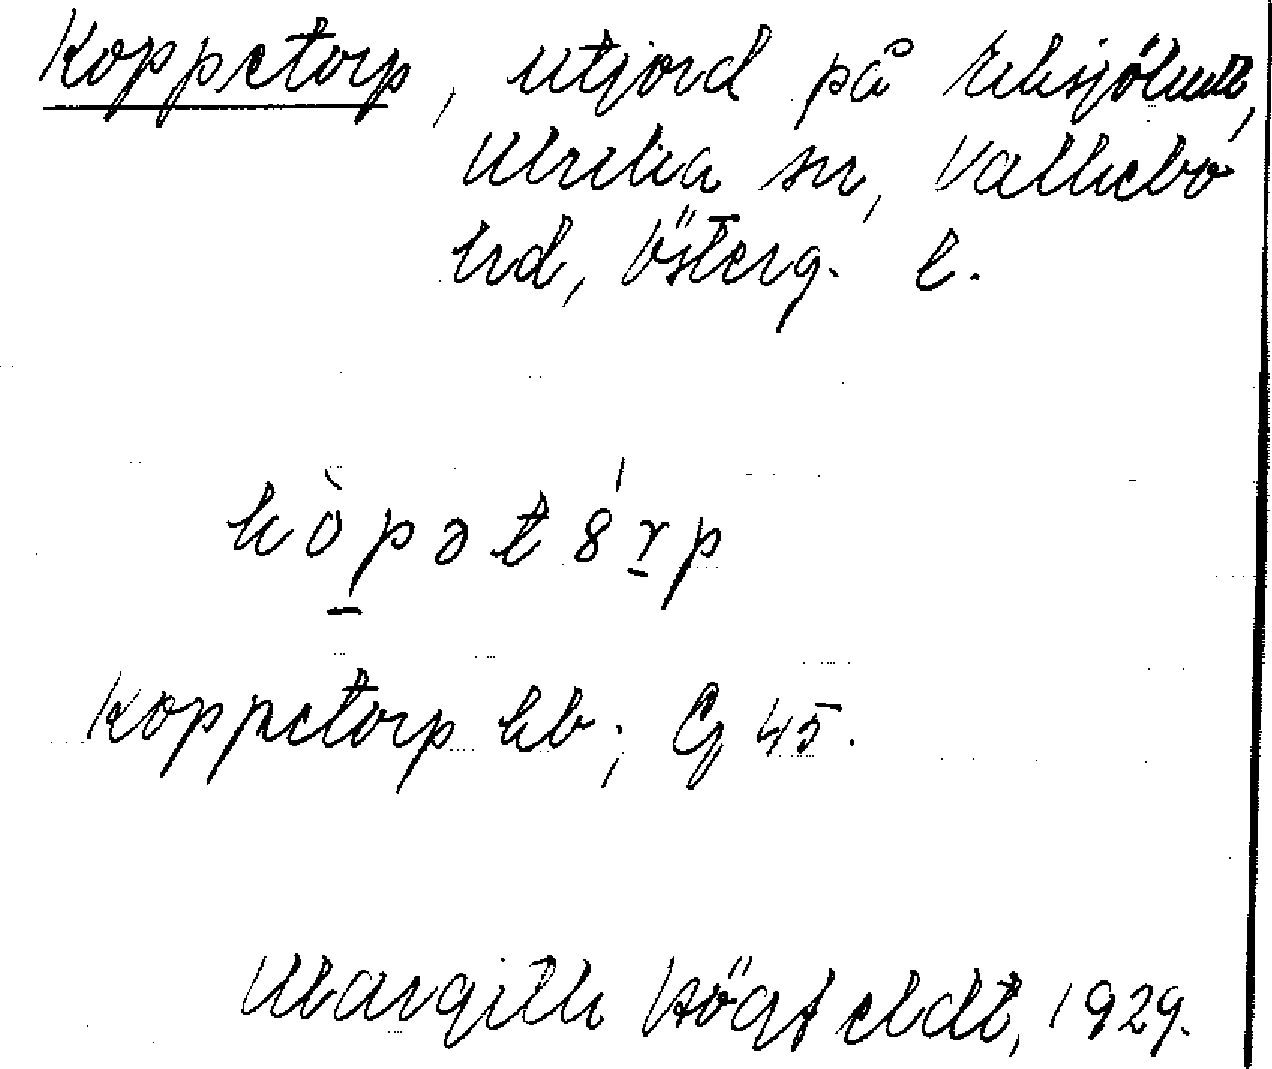 Koppetorp, utjord på Eksjöhult,
Ulrika sn, Valkebo
hrd, Österg. l.
kòpətórp
Koppetorp kb; Eg 45.
Margith Högfeldt, 1929.